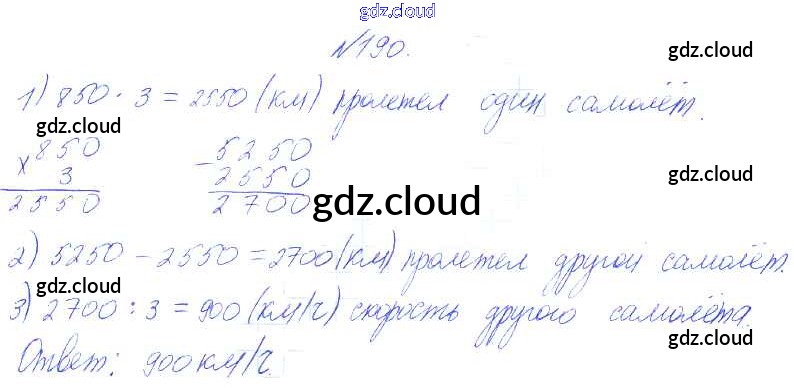 gdz.cloud
№190.
gdz.cloud
1) 850 · 3 = 2550 (км) пролетел один самолёт.
gdz.cloud
× 850 − 5250
3 2550 gdz.cloud
2550 2700 gdz.cloud
2) 5250 − 2550 = 2700 (км) пролетел другой самолёт.
gdz.cloud gdz.cloud
3) 2700 : 3 = 900 (км/ч) скорость другого самолёта.
Ответ: 900 км/ч.
gdz.cloud gdz.cloud